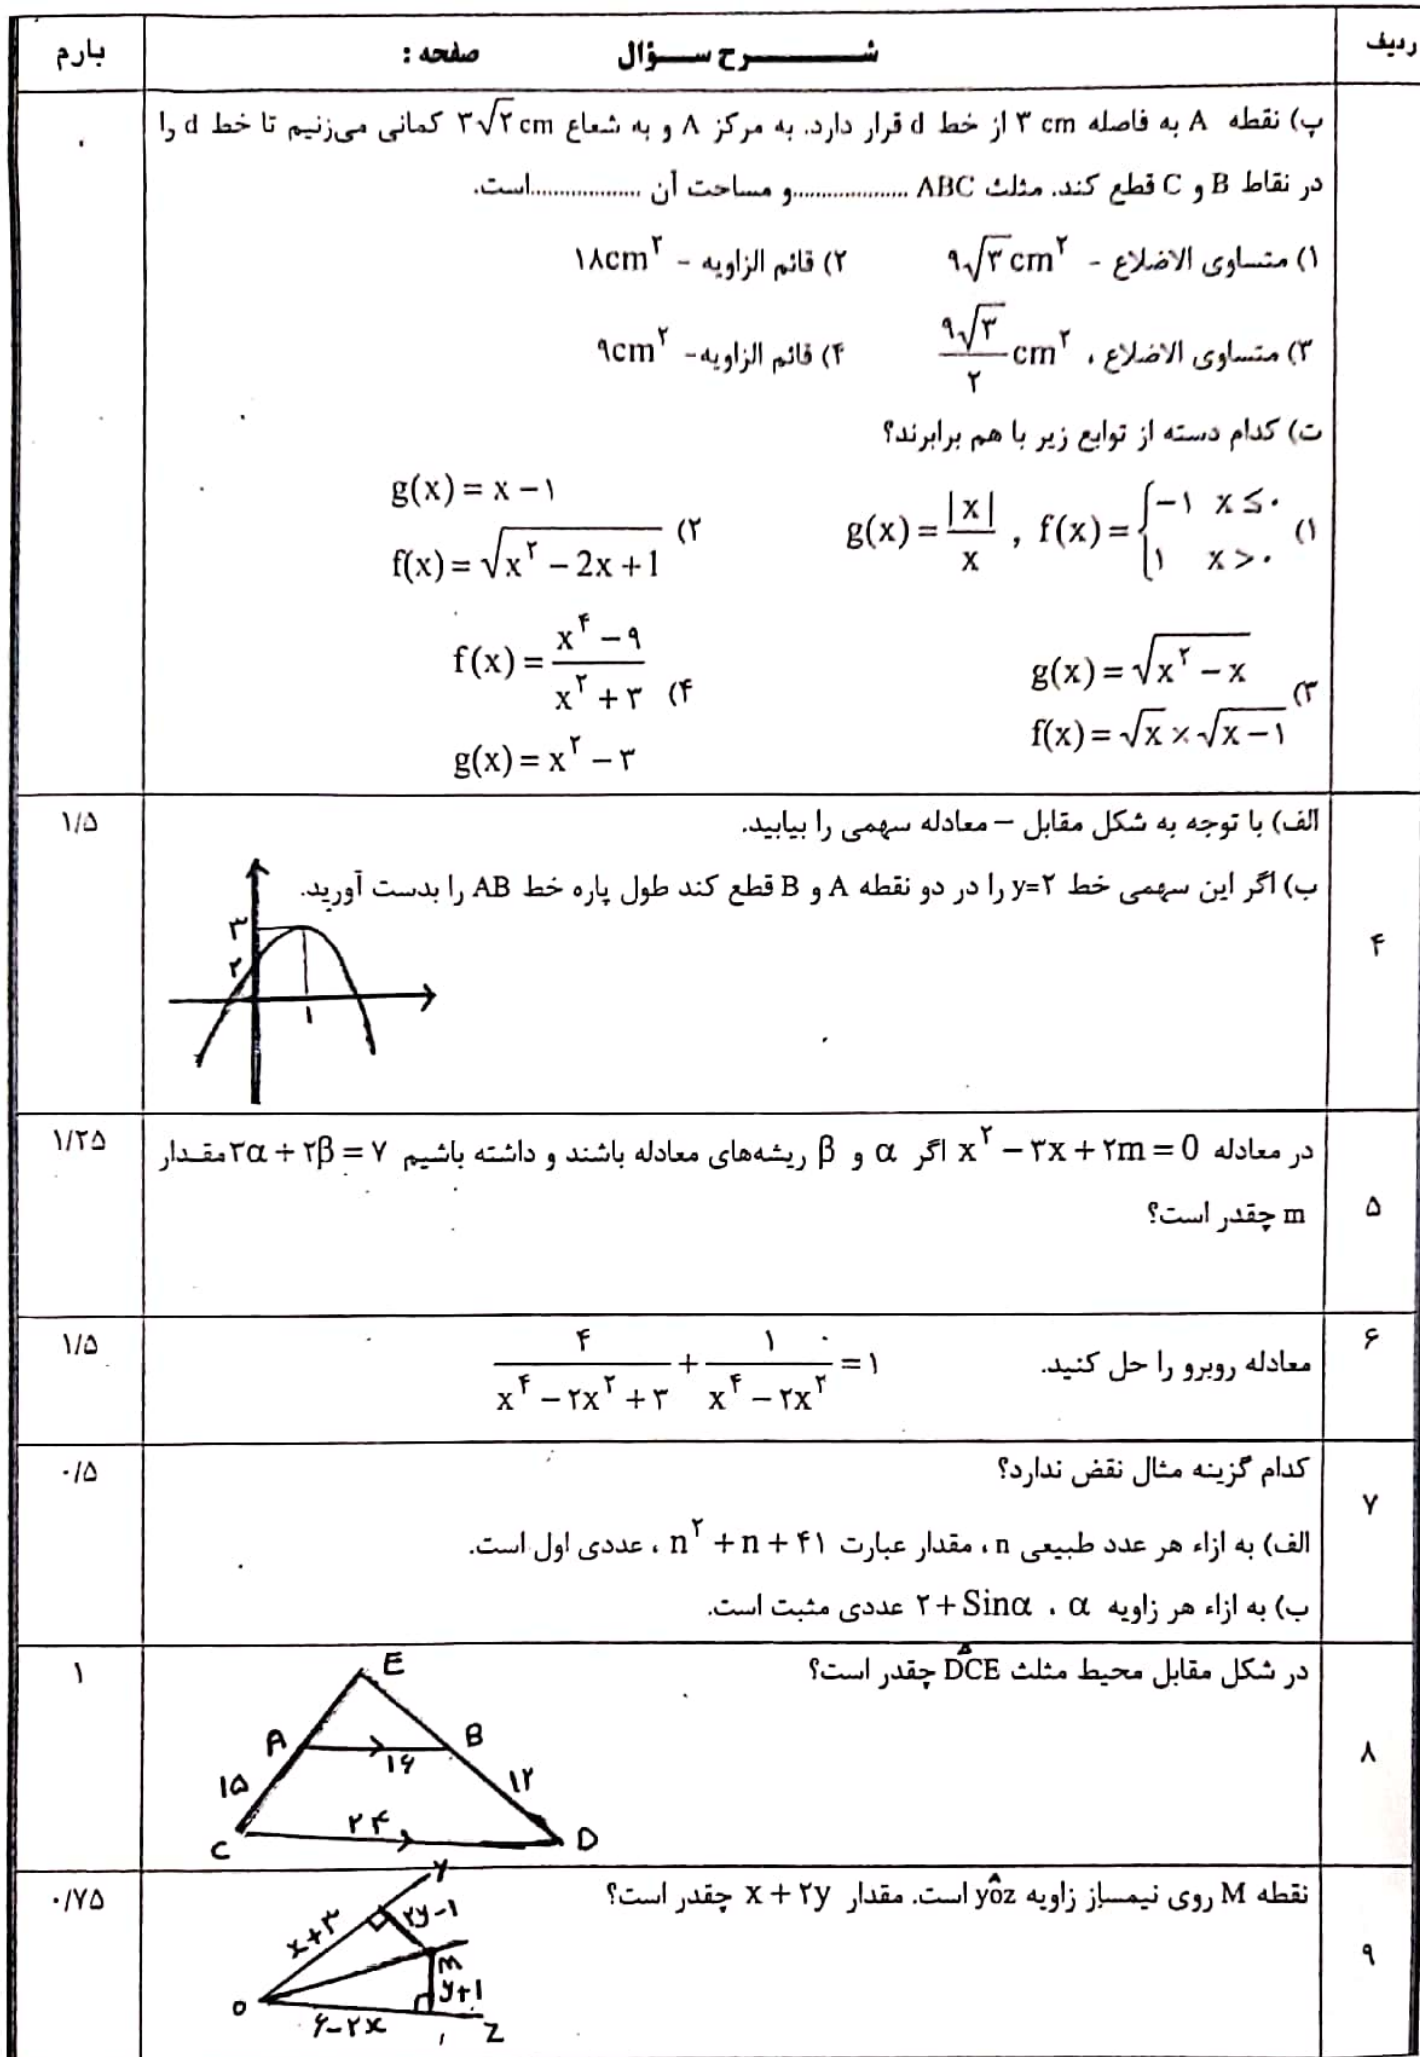 ردیف شـــــــرح ســـؤال صفحه : بارم
پ) نقطه A به فاصله ۳ cm از خط d قرار دارد. به مرکز A و به شعاع ۳√۲ cm کمانی می‌زنیم تا خط d را
در نقاط B و C قطع کند. مثلث ABC ....................و مساحت آن ...................است.
۱) متساوی الاضلاع - ۹√۳ cm² ۲) قائم الزاویه - ۱۸cm²
۳) متساوی الاضلاع ، ۹√۳/۲ cm² ۴) قائم الزاویه- ۹cm²
ت) کدام دسته از توابع زیر با هم برابرند؟
۱) g(x) = |x|/x , f(x) = { -۱ x ≤ ۰ ; ۱ x > ۰
۲) g(x) = x - ۱
f(x) = √(x² - 2x + 1)
۳) g(x) = √(x² - x)
f(x) = √x × √(x - ۱)
۴) f(x) = (x⁴ - ۹)/(x² + ۳)
g(x) = x² - ۳
۴ ۱/۵
الف) با توجه به شکل مقابل – معادله سهمی را بیابید.
ب) اگر این سهمی خط y=۲ را در دو نقطه A و B قطع کند طول پاره خط AB را بدست آورید.
۳
۲
۱
۵ ۱/۲۵
در معادله x² - ۳x + ۲m = 0 اگر α و β ریشه‌های معادله باشند و داشته باشیم ۳α + ۲β = ۷ مقـدار
m چقدر است؟
۶ ۱/۵
معادله روبرو را حل کنید. ۴/(x⁴ - ۲x² + ۳) + ۱/(x⁴ - ۲x²) = ۱
۷ ۰/۵
کدام گزینه مثال نقض ندارد؟
الف) به ازاء هر عدد طبیعی n ، مقدار عبارت n² + n + ۴۱ ، عددی اول است.
ب) به ازاء هر زاویه α ، ۲ + Sinα عددی مثبت است.
۸ ۱
در شکل مقابل محیط مثلث DCE چقدر است؟
E
A B
۱۶
۱۵ ۱۲
۲۴
C D
۹ ۰/۷۵
نقطه M روی نیمساز زاویه yôz است. مقدار x + ۲y چقدر است؟
y
x+۳ ۲y-1
M
y+1
O
۶-۲x Z